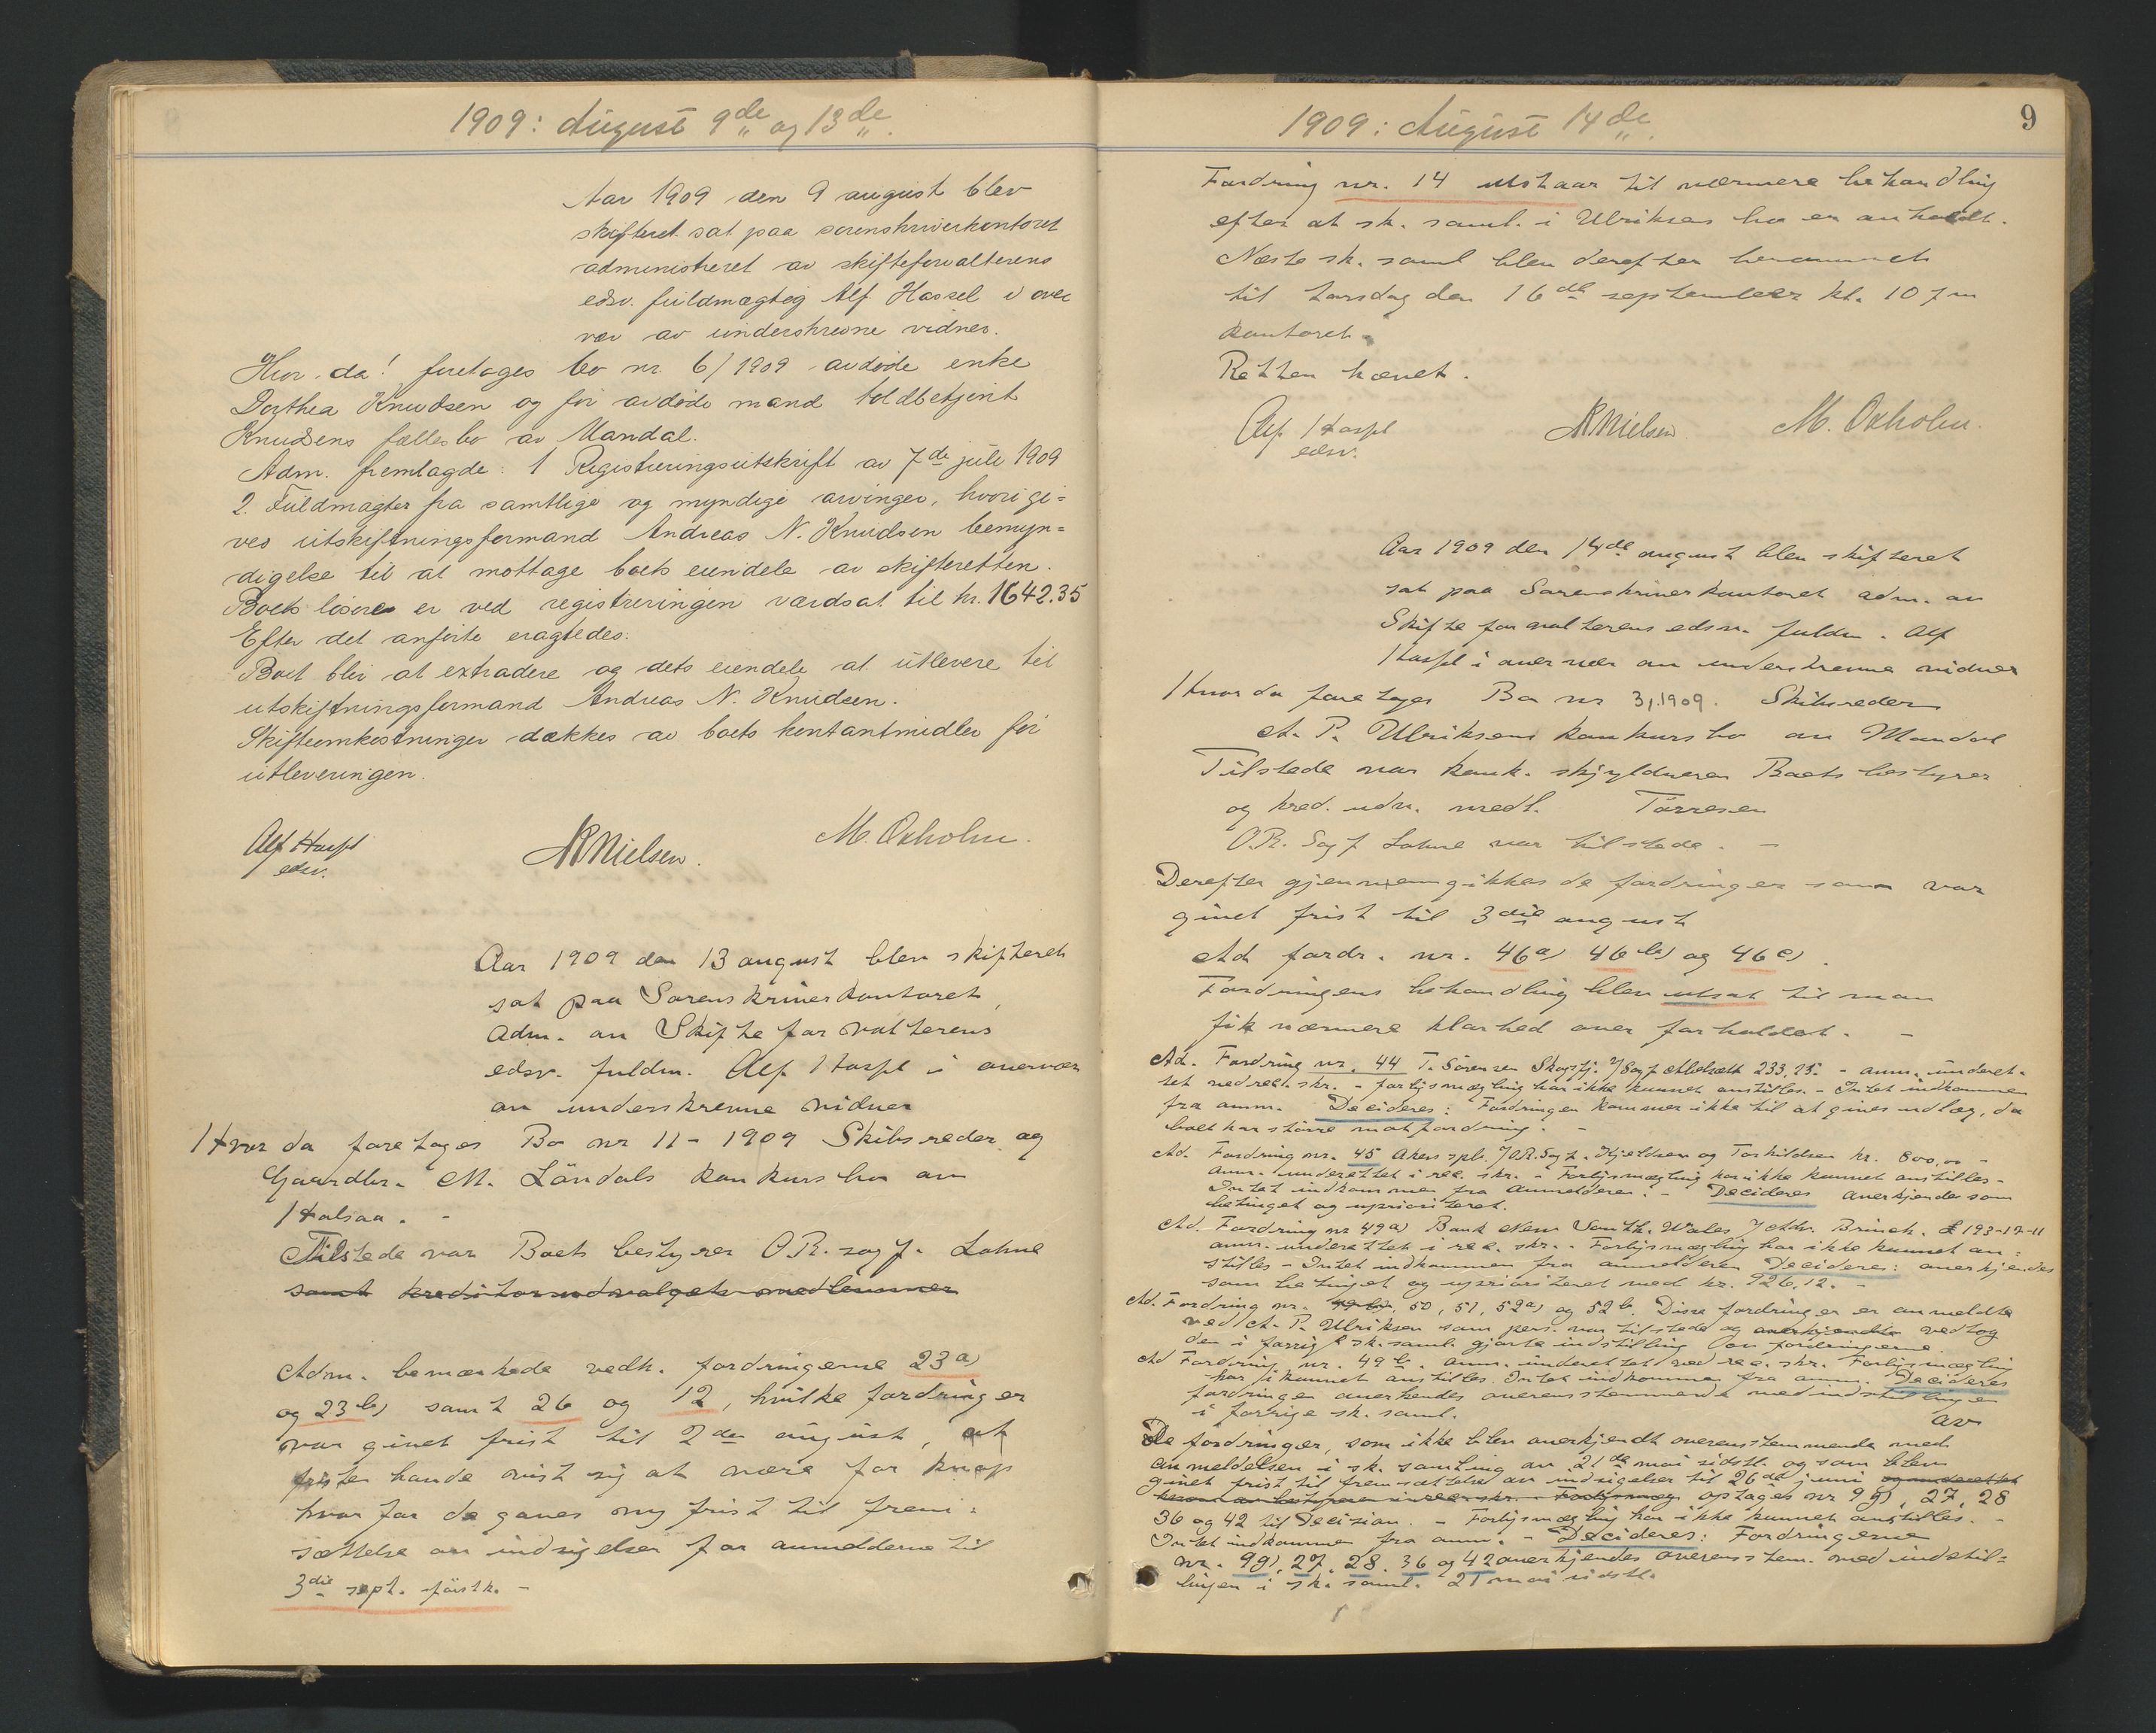 1909: August 9de og 13de.
Aar 1909 den 9 august blev
skifteret sat paa sorenskriverkontoret
administreret av skifteforvalterens
edsv. fuldmægtig Alf Hassel i over
vær av underskrevne vidner.
Hvor da! foretages bo nr. 6/1909 avdøde enke
Dorthea Knudsen og før avdøde mand toldbetjent
Knudsens fællesbo av Mandal.
Adm. fremlagde: 1 Registreringsutskrift av 7de juli 1909
2. Fuldmagter fra samtlige og myndige arvinger, hvori gi=
ves utskiftningsformand Andreas N. Knudsen bemyn=
digelse til at mottage boets eiendele av skifteretten.
Boets løsøre er ved registreringen værdsat til kr. 1642.35
Efter det anførte eragtedes:
Boet blir at extradere og dets eiendele at utlevere til
utskiftningsformand Andreas N. Knudsen.
Skifteomkostninger dækkes av boets kontantmidler før
utleveringen.
Alf Hassel NNielsen. M. Oxholm.
edsv.
Aar 1909 den 13 august blev skifteret
sat paa Sorenskriverkontoret,
adm. av Skifteforvalterens
edsv. fuldm. Alf Hassel i overvær
av underskrevne vidner
Hvor da foretages Bo nr 11 - 1909 Skibsreder og
Gaardbr. M. Løndals konkursbo av
Halsaa. -
Tilstede var Boets bestyrer O.R. sagf. Lohne
samt kreditorudvalgets medlemmer
Adm. bemærkede vedk. fordringerne 23a)
og 23b) samt 26 og 12, hvilke fordringer
var givet frist til 2den august, at
fristen havde vist sig at være for knap
hvorfor de gaves ny frist til frem=
sættelse av indsigelser for anmelderne til
3die sept. førstk. -
1909: August 14de.
9
Fordring nr. 14 utstaar til nærmere behandling
efter at sk. saml. i Ulriksens bo er anholdt.
Næste sk. saml blev derefter berammet
til torsdag den 16de september kl. 10 fm
kontoret.
Retten hævet.
Alf Hassel NNielsen. M. Oxholm.
edsv.
Aar 1909 den 14de august blev skifteret
sat paa Sorenskriverkontoret adm. av
Skifteforvalterens edsv. fuldm. Alf
Hassel i overvær av underskrevne vidner
Hvor da foretages Bo nr 3, 1909. Skibsreder
A. P. Ulriksens konkursbo av Mandal
Tilstede var konk. skyldneren Boets bestyrer
og kred. udv. medl. Tørresen
O.R. Sagf Lohne var tilstede. -
Derefter gjennemgikkes de fordringer som var
givet frist til 3die august
Ad fordr. nr. 46a) 46b) og 46c).
Fordringens behandling blev utsat til man
fik nærmere klarhed over forholdet. -
Ad. Fordring nr. 44 T. Sørensen Skogsfj. Sagf 233,25. - anm. underet-
tet ved rek. skr. - forligsmægling har ikke kunnet anstilles. - Intet indkommen
fra anm. Decideres: Fordringen kommer ikke til at gives udlæg, da
boet har større motfordring. -
Ad. Fordring nr. 45 Akers spb. / O.R. Sagf. Kjeldsen og Torkildsen kr. 800,00 -
anm. underettet i rek. skr. - Forligsmægling har ikke kunnet anstilles -
Intet indkommen fra anmelderen. - Decideres anerkjendes som
betinget og uprioriteret.
Ad. Fordring nr 49a) Bank New South. Wales / Adv. Brinch. £ 193-17-11
anm. underettet i rek. skr. - Forligsmægling har ikke kunnet an=
stilles - Intet indkommen fra anmelderen Decideres: anerkjendes
som betinget og uprioriteret med kr. 926.12. -
Ad. Fordring nr. 50, 51, 52a) og 52b. Disse fordringer er anmeldte
ved A. P. Ulriksen som pers. var tilstede og anerkjendte vedtog
den i forrige sk. saml. gjorte indstilling om fordringerne
Ad Fordring nr. 49b. anm. underettet ved rek. skr. Forligsmægling
har i kunnet anstilles. Intet indkommen fra anm. Decideres
fordringen anerkendes overensstemmende med indstillingen
i forrige sk. saml.
av
De fordringer, som ikke blev anerkjendt overenstemmende med
anmeldelsen i sk. samling av 21de mai sidstl. og som blev
givet frist til fremsættelse av indsigelser til 26de juni og underettet
optages nr 9g), 27, 28
36 og 42 til Decision. - Forligsmægling har ikke kunnet anstilles. -
Intet indkommen fra anm. - Decideres: Fordringerne
nr. 9g), 27, 28. 36 og 42 anerkjendes overensstem. med indstil=
lingen i sk. saml. 21 mai sidstl.